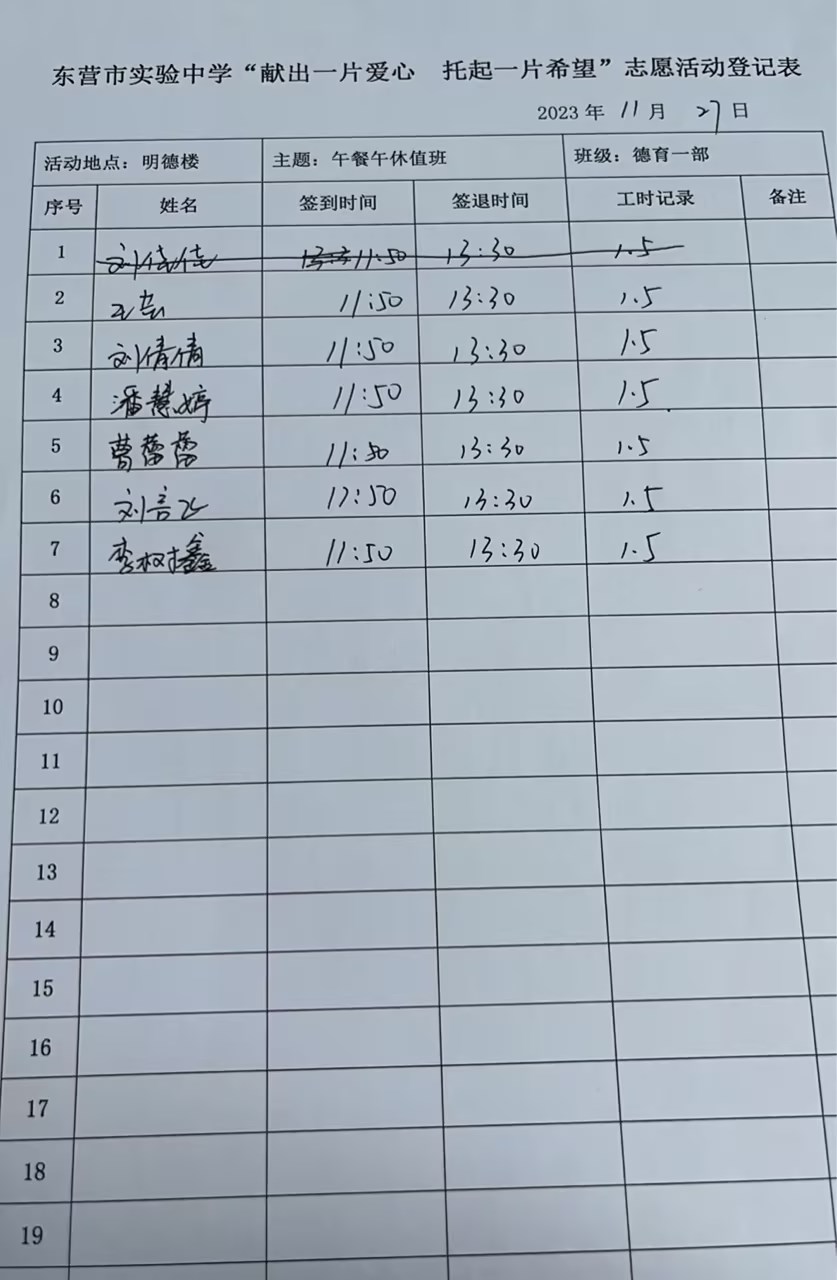 东营市实验中学“献出一片爱心 托起一片希望”志愿活动登记表
2023 年 11 月 27 日
活动地点：明德楼 主题：午餐午休值班 班级：德育一部
序号 姓名 签到时间 签退时间 工时记录 备注
1 11:50 13:30 1.5
2 11:50 13:30 1.5
3 刘倩倩 11:50 13:30 1.5
4 潘慧婷 11:50 13:30 1.5
5 曹蕾蕾 11:50 13:30 1.5
6 13:30 1.5
7 11:50 13:30 1.5
8
9
10
11
12
13
14
15
16
17
18
19